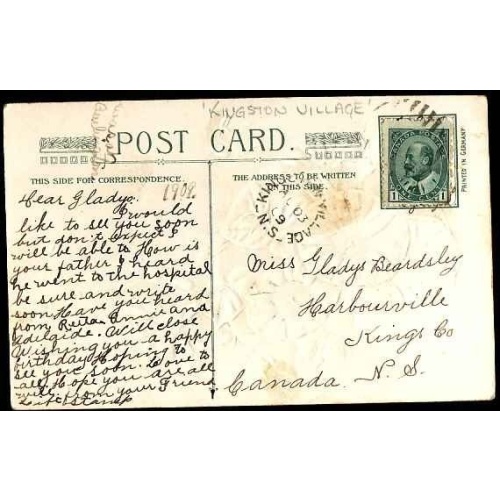 'KINGSTON VILLAGE'
POST CARD.
THIS SIDE FOR CORRESPONDENCE.
THE ADDRESS TO BE WRITTEN
ON THIS SIDE.
PRINTED IN GERMANY
CANADA POSTAGE
1 1
VILLAGE N.S.
1908
Dear Gladys.
I would
like to see you soon
but don't expect I
will be able to How is
your father I heard
he went to the hospital
be sure and write
soon Have you heard
from Reita Annie and
Adelaide. Will close
Wishing you a happy
birthday Hoping to
see you soon. Love to
all Hope you are all
well From your Friend
Stamp
Miss Gladys Beardsley
Harbourville
Kings Co
Canada. N. S.